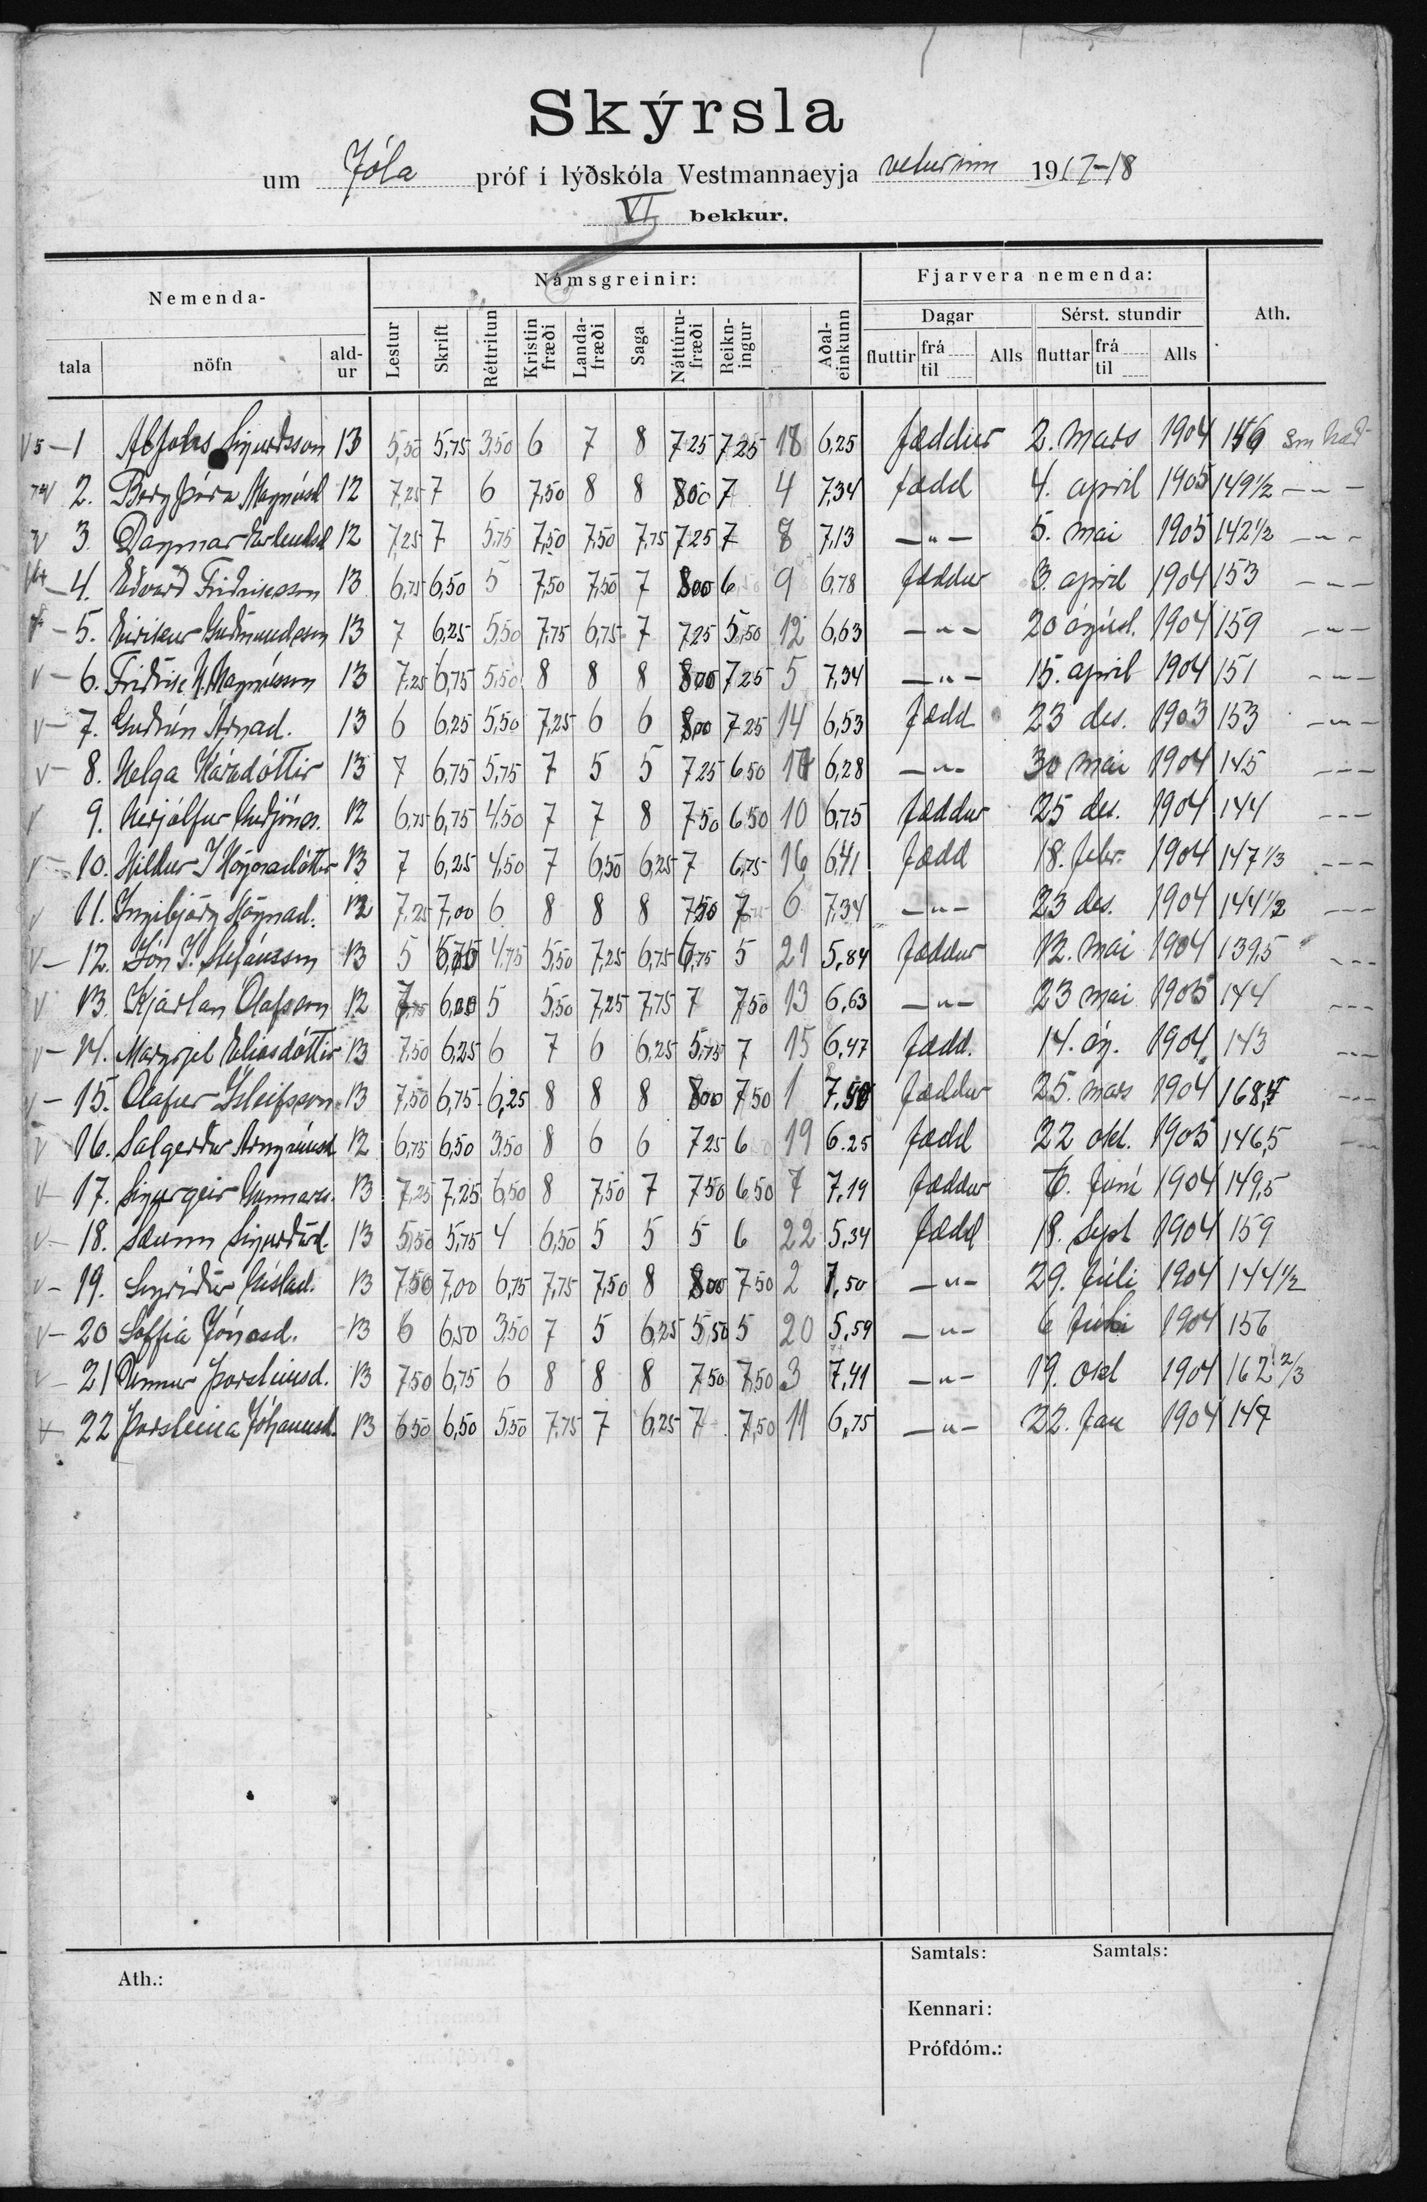 Skýrsla
um Jóla próf í lýðskóla Vestmannaeyja veturinn 1917-18
VI bekkur.
Nemenda- Námsgreinir: Fjarvera nemenda: Ath.
Dagar Sérst. stundir
tala nöfn aldur Lestur Skrift Réttritun Kristinfræði Landafræði Saga Náttúrufræði Reikningur Aðaleinkunn fluttir frá til Alls fluttar frá til Alls
1 Sigurðsson 13 5,50 5,75 3,50 6 7 8 7 25 7 25 18 6,25 fæddur 2. mars 1904 146 sm hæð
2. Bergþóra Magnúsd 12 7,25 7 6 7,50 8 8 8 00 7 4 7,34 fædd 4. april 1905 149 1/2 — „ —
3. Dagmar Erlendsd 12 7,25 7 5,75 7,50 7,50 7,75 7 25 7 8 7,13 — „ — 5. mai 1905 142 1/2 — „ —
4. Edvard Friðriksson 13 6,75 6,50 5 7,50 7,50 7 8 00 6 9 6,78 fæddur 3. april 1904 153 — „ —
5. Eirikur Guðmundsson 13 7 6,25 5,50 7,75 6,75 7 7 25 5,50 12 6,63 — „ — 20 ágúst. 1904 159 — „ —
6. Friðrik Magnússon 13 7,25 6,75 5,50 8 8 8 8 00 7 25 5 7,34 — „ — 15. april 1904 151 — „ —
7. Guðrún Árnad. 13 6 6,25 5,50 7,25 6 6 8 00 7 25 14 6,53 fædd 23 des. 1903 153 — „ —
8. Helga Káradóttir 13 7 6,75 5,75 7 5 5 7 25 6 50 17 6,28 — „ — 30 mai 1904 145 — „ —
9. Herjólfur Guðjóns. 12 6,75 6,75 4,50 7 7 8 7 50 6 50 10 6,75 fæddur 25 des. 1904 144 - - -
10. Hildur 13 7 6,25 4,50 7 6,50 6,25 7 6,75 16 6,41 fædd 18. febr. 1904 147 1/3 - - -
11. Ingibjörg Högnad. 12 7,25 7,00 6 8 8 8 7 50 7 6 7,34 — „ — 23 des. 1904 144 1/2 - - -
12. Jón Stefánsson 13 5 6,75 4,75 5,50 7,25 6,75 6,75 5 21 5,84 fæddur 12. mai 1904 139,5 - - -
13. Kjartan Ólafsson 12 7,75 6,00 5 5,50 7,25 7,75 7 7,50 13 6,63 — „ — 23 mai 1905 144 - - -
14. Margrjet Eliasdóttir 13 7,50 6,25 6 7 6 6,25 5,75 7 15 6,47 fædd. 14. ág. 1904 143 - - -
15. Ólafur Ísleifsson 13 7,50 6,75 6,25 8 8 8 8 00 7 50 1 7,50 fæddur 25. mars 1904 168,5 - - -
16. Salgerður Arngrímsd 12 6,75 6,50 3,50 8 6 6 7 25 6 19 6.25 fædd 22 okt. 1905 146,5 - - -
17. Sigurgeir Gunnars. 13 7,25 7,25 6,50 8 7,50 7 7 50 6 50 7 7.19 fæddur 6. Júní 1904 149,5
18. Sæunn Sigurðard. 13 5,50 5,75 4 6,50 5 5 5 6 22 5,34 fædd 18. sept 1904 159
19. Sigriður Gíslad. 13 7 50 7,00 6,75 7,75 7,50 8 8 00 7 50 2 7,50 — „ — 29. Júli 1904 144 1/2
20 Soffía Jónasd. 13 6 6,50 3,50 7 5 6,25 5 50 5 20 5,59 — „ — 6 1904 156
21 Unnur Þorsteinsd. 13 7 50 6,75 6 8 8 8 7 50 7,50 3 7,41 — „ — 19. okt 1904 162 2/3
22 Þorsteina Jóhannsd. 13 6 50 6,50 5,50 7,75 7 6,25 7 7,50 11 6,75 — „ — 22. Jan 1904 147
Ath.: Samtals: Samtals:
Kennari:
Prófdóm.: